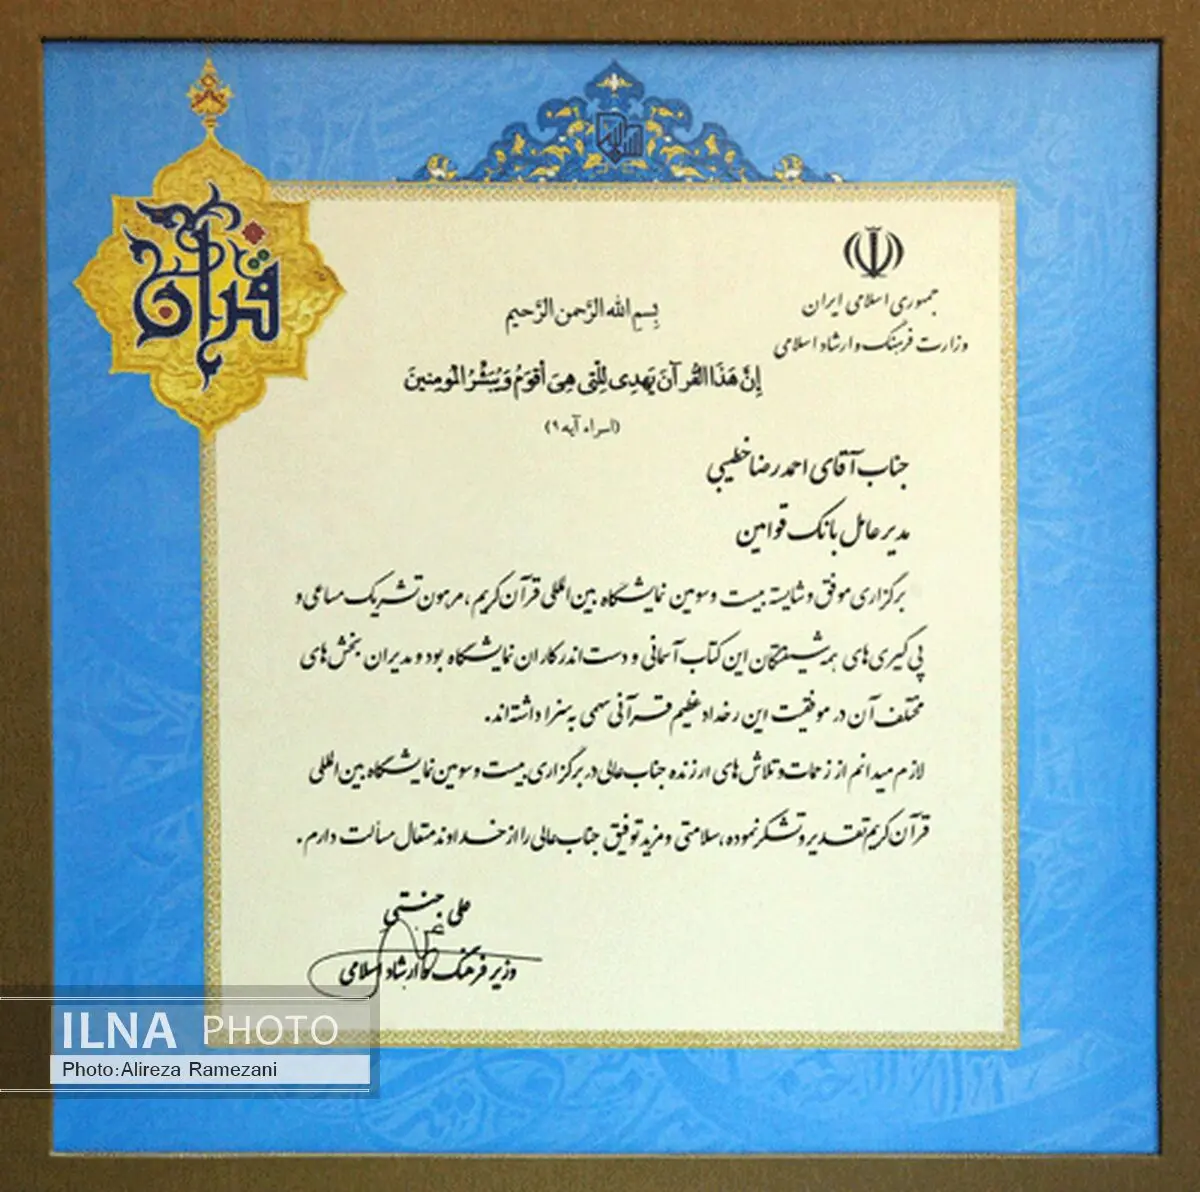 قرآن
جمهوری اسلامی ایران
وزارت فرهنگ و ارشاد اسلامی
بِسمِ اللهِ الرَّحمنِ الرَّحیم
إنَّ هَذَا القُرآنَ یَهدِی لِلَّتی هِیَ أقوَمُ وَیُبَشِّرُ المُومِنینَ
(اسراء آیه ۹)
جناب آقای احمدرضا خطیبی
مدیر عامل بانک قوامین
برگزاری موفق و شایسته بیست و سومین نمایشگاه بین المللی قرآن کریم، مرهون تشریک مساعی و
پی گیری های همه شیفتگان این کتاب آسمانی و دست اندرکاران نمایشگاه بود و مدیران بخش های
مختلف آن در موفقیت این رخداد عظیم قرآنی سهمی به سزا داشته اند.
لازم میدانم از زحمات و تلاش های ارزنده جناب عالی در برگزاری بیست و سومین نمایشگاه بین المللی
قرآن کریم تقدیر و تشکر نموده، سلامتی و مزید توفیق جناب عالی را از خداوند متعال مسألت دارم.
علی جنتی
وزیر فرهنگ و ارشاد اسلامی
ILNA PHOTO
Photo:Alireza Ramezani